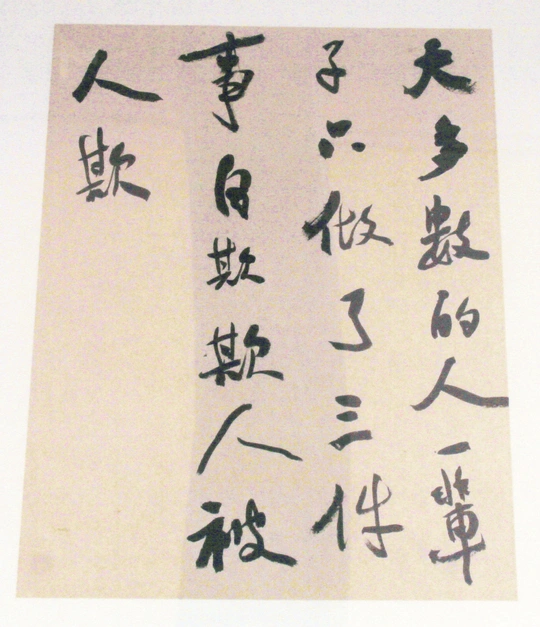 大多數的人一輩
子只做了三件
事自欺欺人被
人欺